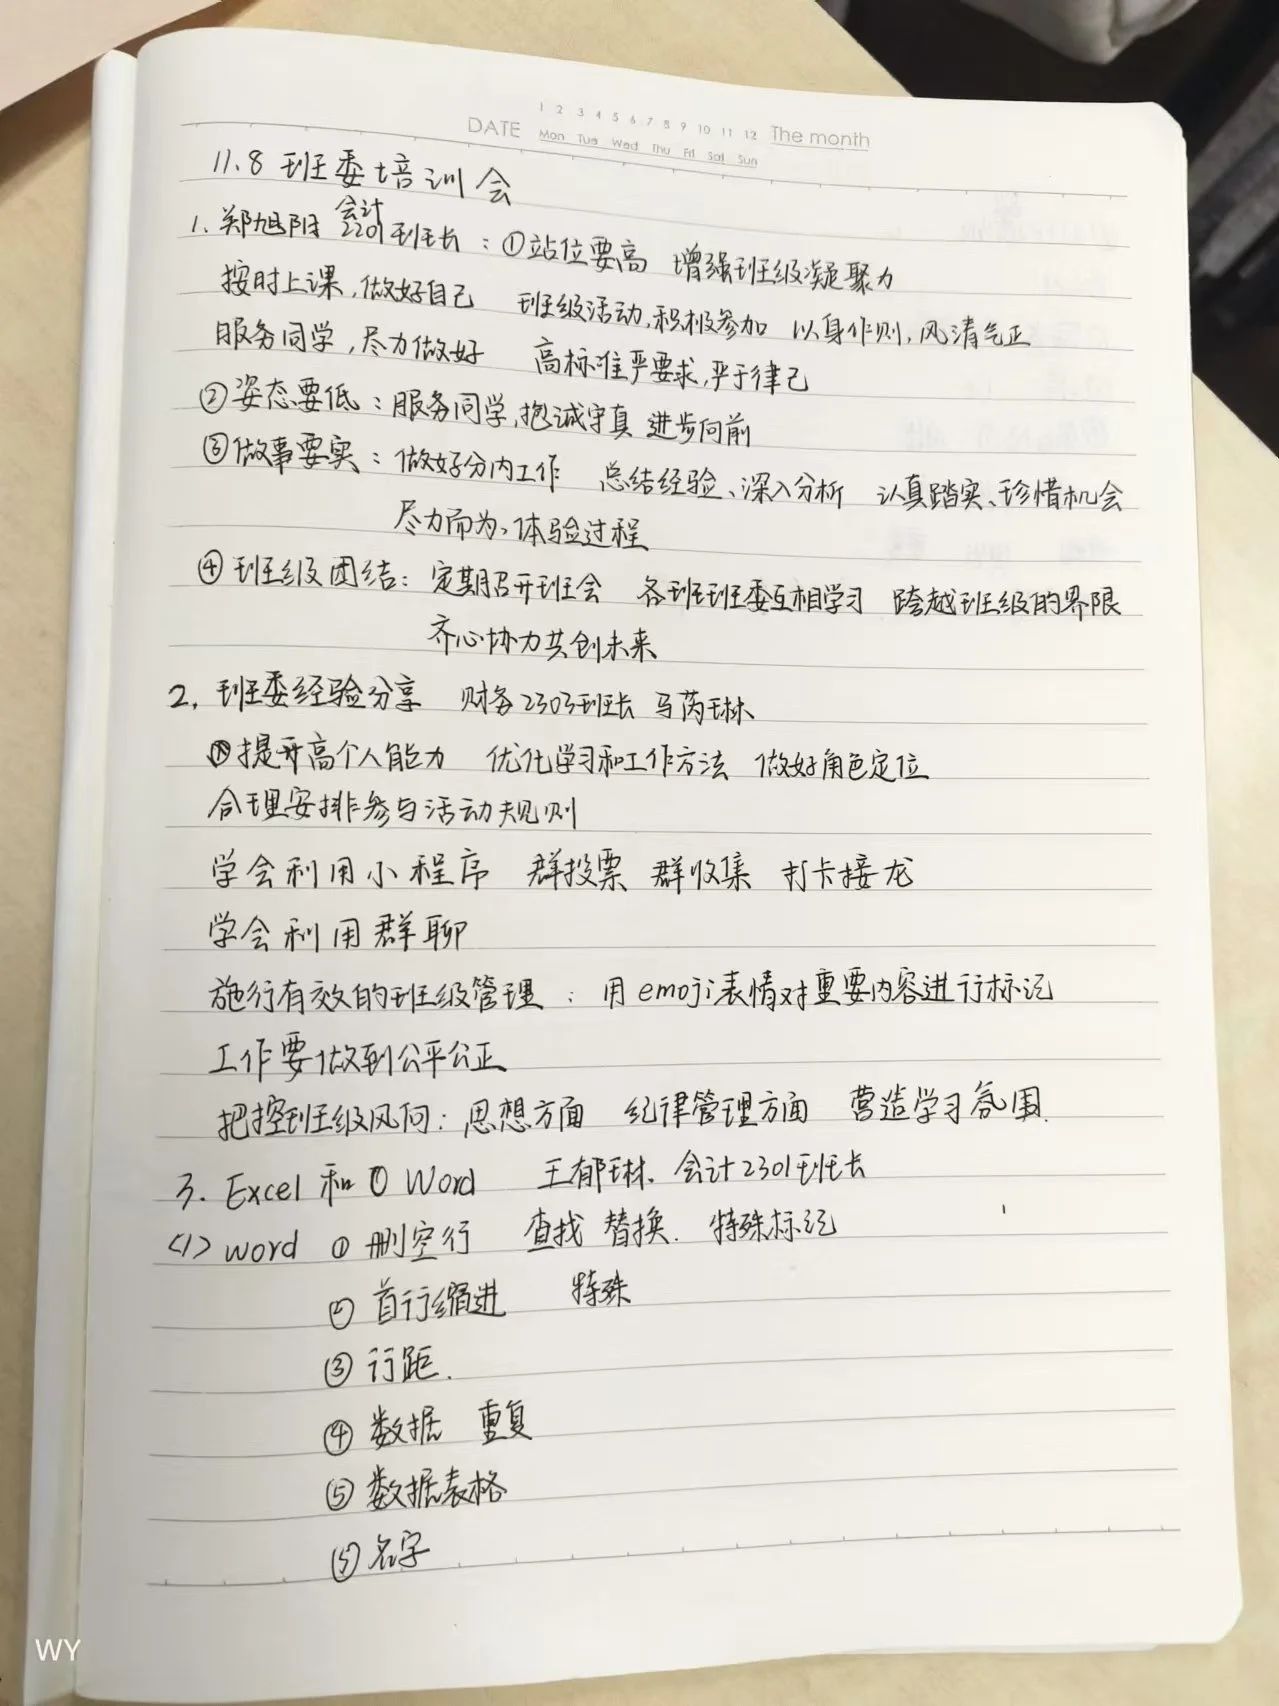 1 2 3 4 5 6 7 8 9 10 11 12
DATE Mon Tue Wed Thu Fri Sat Sun The month
11.8 班委培训会
会计
1. 郑旭阳 2201班长：①站位要高 增强班级凝聚力
按时上课，做好自己 班级活动，积极参加 以身作则，风清气正
服务同学，尽力做好 高标准严要求，严于律己
②姿态要低：服务同学，抱诚守真 进步向前
③做事要实：做好分内工作 总结经验、深入分析 认真踏实、珍惜机会
尽力而为，体验过程
④班级团结：定期召开班会 各班班委互相学习 跨越班级的界限
齐心协力共创未来
2. 班委经验分享 财务2303班长 马芮琳
①提升高个人能力 优化学习和工作方法 做好角色定位
合理安排参与活动规则
学会利用小程序 群投票 群收集 打卡接龙
学会利用群聊
施行有效的班级管理：用emoji表情对重要内容进行标记
工作要做到公平公正
把控班级风向：思想方面 纪律管理方面 营造学习氛围.
3. Excel 和 Word 王郁琳. 会计2301班长
<1> word ① 删空行 查找 替换. 特殊标记
② 首行缩进 特殊
③ 行距.
④ 数据 重复
⑤ 数据表格
⑤ 名字
WY